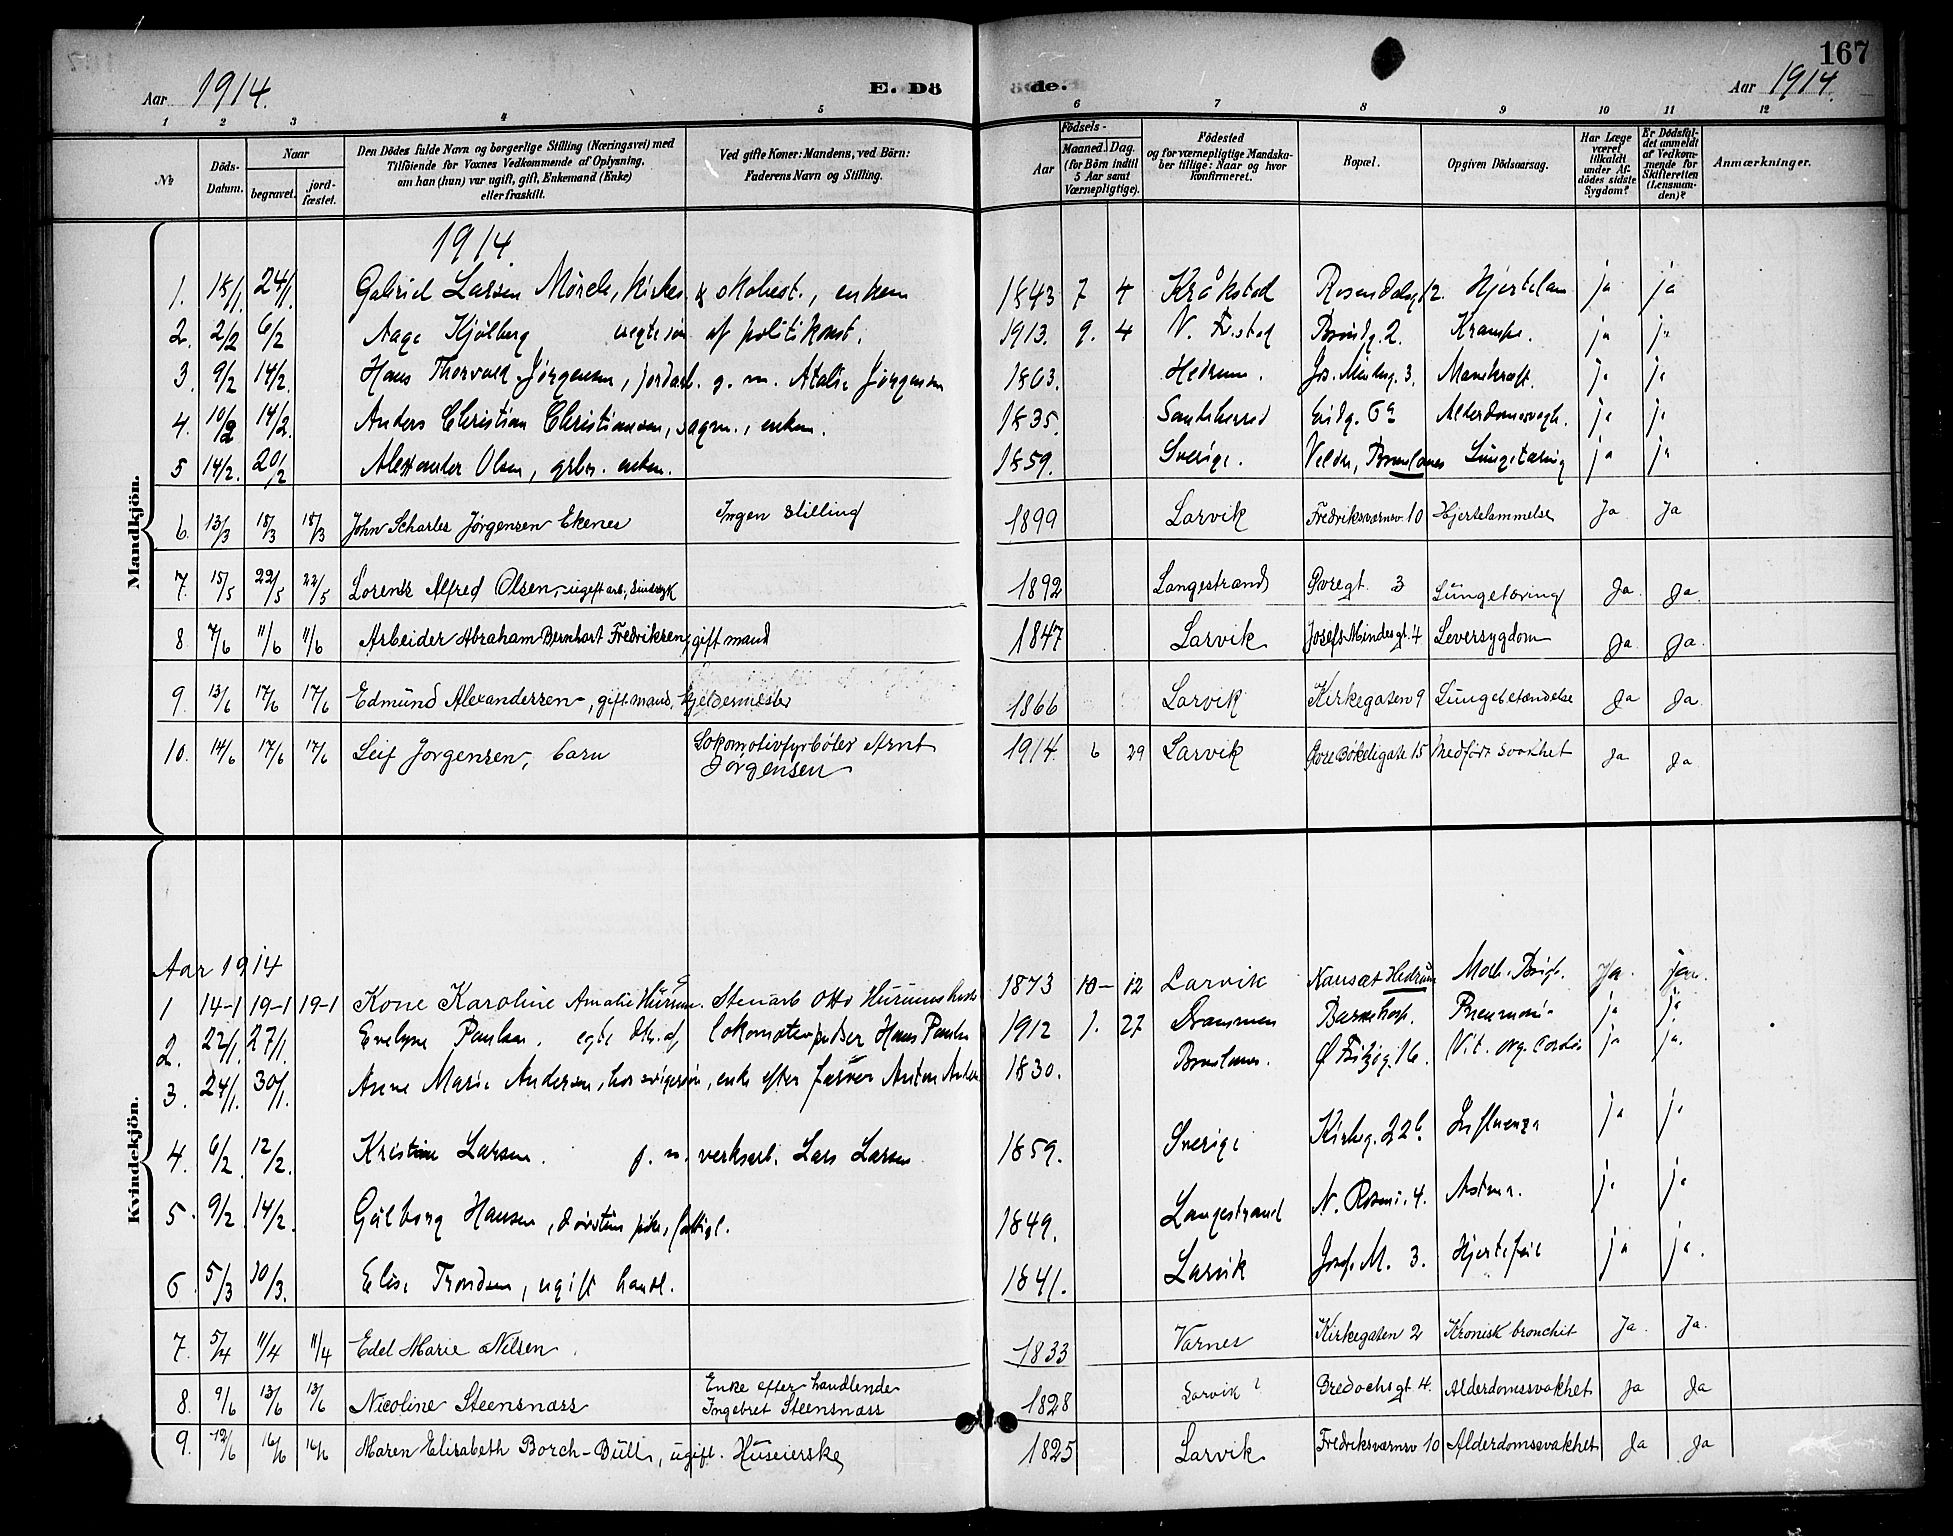 167
Aar 1914. E. Dö de. Aar 1914.
1 2 3 4 5 6 7 8 9 10 11 12
№
Döds-Datum.
Naar
begravet. jord-fæstet.
Den Dödes fulde Navn og borgerlige Stilling (Næringsvei) med
Tilföiende for Voxnes Vedkommende af Oplysning,
om han (hun) var ugift, gift, Enkemand (Enke)
eller fraskilt.
Ved gifte Koner: Mandens, ved Börn:
Faderens Navn og Stilling.
Födsels-
Aar
Maaned. Dag.
(for Börn indtil
5 Aar samt
Værnepligtige).
Födested
og for værnepligtige Mandska-
ber tillige: Naar og hvor
konfirmeret.
Bopæl.
Opgiven Dödsaarsag.
Har Læge
været
tilkaldt
under Af-
dödes sidste
Sygdom?
Er Dödsfal-
det anmeldt
af Vedkom-
mende for
Skifteretten
(Lensman-
den)?
Anmærkninger.
Mandkjön.
1914.
1. 18/1. 24/1. Gabriel Larsen Mörch, kirke & skobest., enkem 1843 7 4 Kråkstad 12. Hjertelam ja ja
2. 2/2 6/2 Aage Kjölberg uegte sön af politikonst. 1913. 9. 4 V. Fr.stad 2. Krampe. ja ja
3. 9/2 14/2. Hans Thorvald Jörgensen, jordarb. g. m. Atalie Jörgensen 1863. Hedrum. Jos. Mindeg. 3. Marekræft. ja ja
4. 10/2 14/2. Anders Christian Christiansen, sagm., enkem. 1835. Sandeherred 6a Alderdomssvagh. ja ja
5 14/2. 20/2 Alexander Olsen, enkem. 1859. Sverige. Brunlanes Lungetæring ja ja
6. 13/3 18/3 18/3 John Scharles Jørgensen Ekenes Ingen stilling 1899 Larvik Fredriksværnsv 10 Hjertelammelse Ja Ja
7. 15/5 22/5 22/5 Lorents Alfred Olsen, ugift arb., sindssyk 1892 Langestrand Øvregt 3 Lungetæring Ja. Ja.
8. 7/6 11/6 11/6 Arbeider Abraham Bernhart Fredriksen, gift mand 1847 Larvik Josefs Mindesgt. 4 Leversygdom Ja. Ja.
9. 13/6 17/6 17/6 Edmund Alexandersen, gift mand, kjeldermester 1866 Larvik Kirkegaten 9 Lungebetændelse Ja Ja.
10. 14/6 17/6 17/6 Leif Jørgensen, barn Lokomotivfyrbøter Arnt
Jørgensen 1914. 6 29 Larvik Øvre Bökeligate 15 Medfødt svakhet Ja Ja
Kvindekjön.
Aar 1914
1 14-1 19-1 19-1 Kone Karoline Amalie Hurum. Stenarb Otto Hurums 1873 10 - 12 Larvik Hedrum Morb. Brigt. Ja.
2. 22/1. 27/1. Evelyn Paulsen. egte dtr. af lokomotivpudser Hans Paulsen 1912 1. 27 Drammen Barnehosp. Pneumoni ja ja
3. 24/1. 30/1. Anne Marie Andersen, hos svigersøn, enke efter farver Anton Andersen 1830. Brunlanes. Ø Fritzøg. 16. Vit. org. cordis ja ja.
4. 6/2. 12/2. Kristine Larsen. g. m. verksarb. Lars Larsen 1859. Sverige Kirkeg. 22b. Influenza ja ja
5. 9/2. 14/2. Gulborg Hansen, dövstum pike, fattigl. 1849. Langestrand 4. Astma. ja ja
6. 5/3 10/3. Elise Trondsen, ugift handl. 1841. Larvik Josefs M. 3. Hjertefeil ja ja.
7. 5/4 11/4 11/4 Edel Marie Nilsen 1833 Varnes Kirkegaten 2 Kronisk bronchit Ja. Ja.
8. 9/6 13/6 13/6 Nicoline Steensnæss Enke efter handlende
Ingebret Steensnæss 1828 Larvik? Bredochsgt 4. Alderdomssvakhet Ja Ja
9. 12/6 16/6 16/6 Maren Elisabeth Borch-Bull, ugift. Huseierske 1825 Larvik Fredriksværnsv 10 Alderdomssvakhet Ja Ja